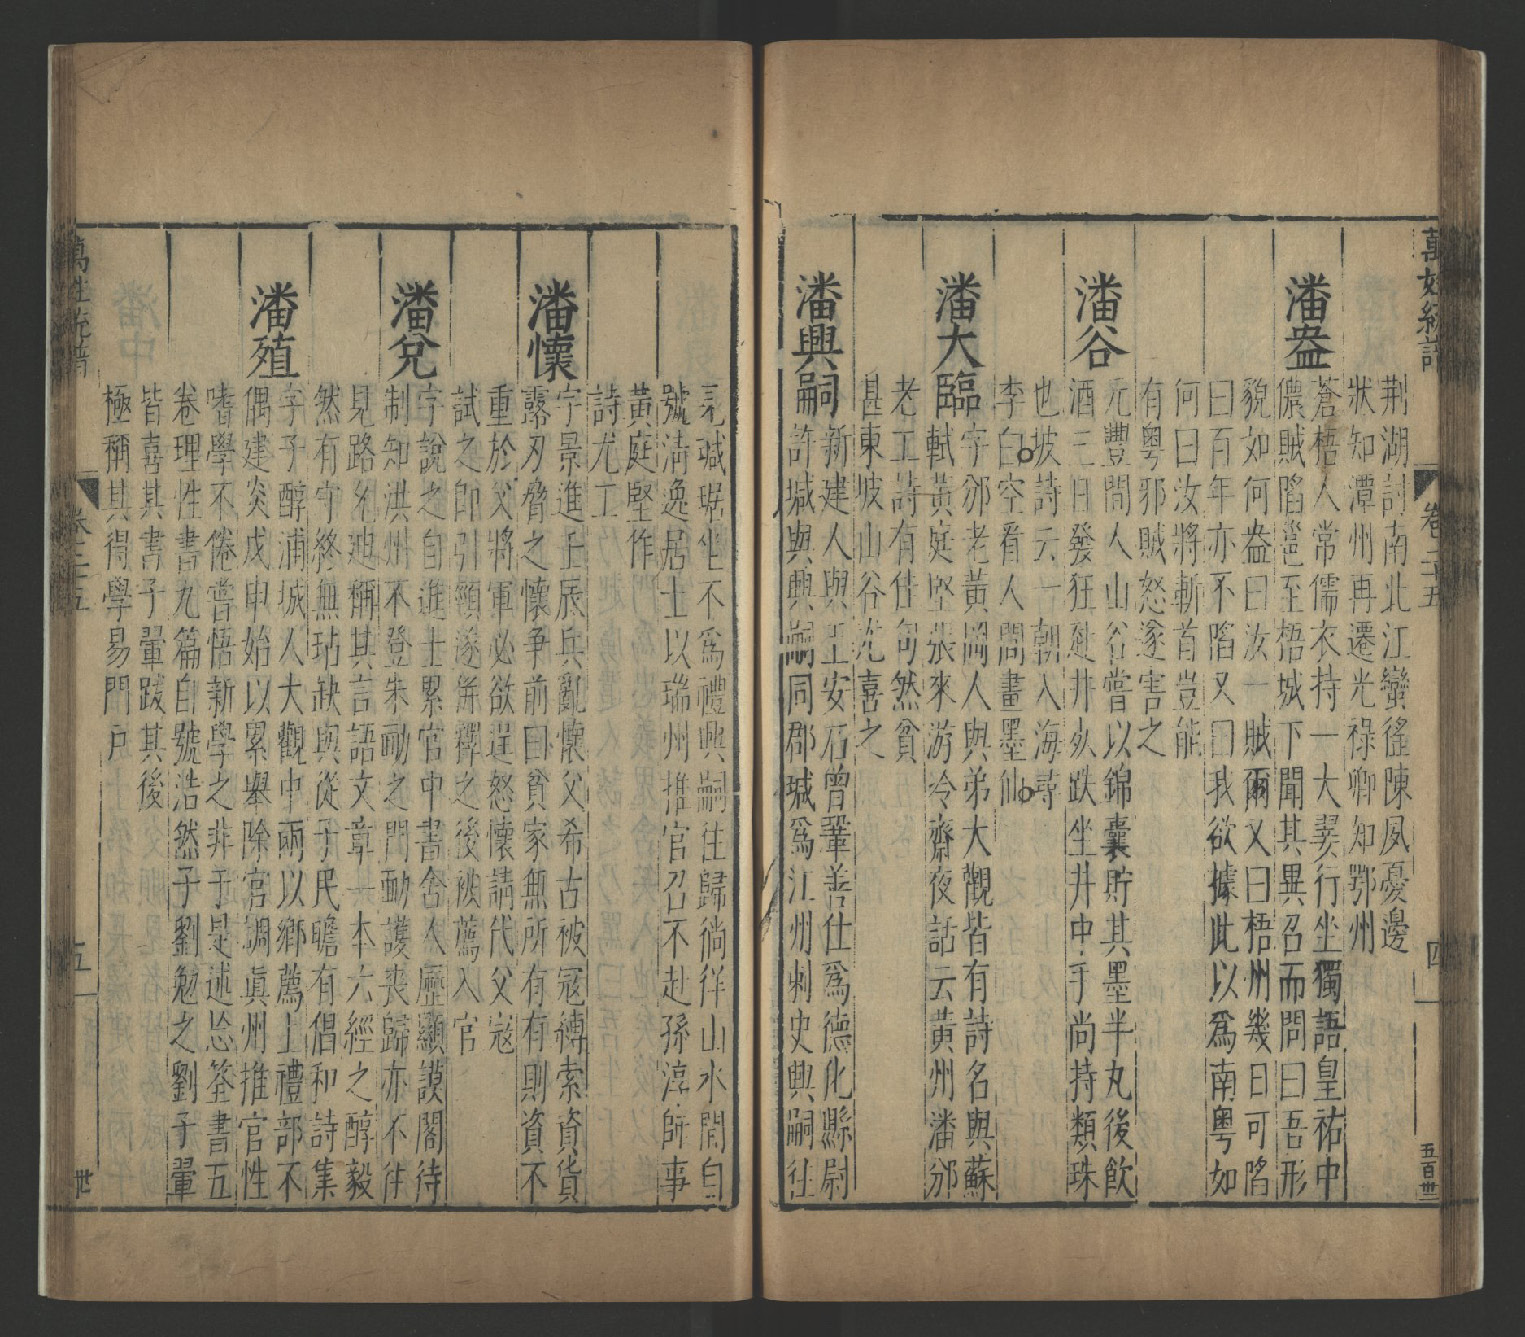 荆湖討南北江蠻徭陳夙憂邊
狀知潭州再遷光祿卿知鄂州
潘盎
蒼梧人常儒衣持一大罢行坐獨語皇祐中
儂賊陷邕至梧城下聞其異召而問曰吾形
貌如何盎曰汝一賊爾又曰梧州幾日可陷
曰百年亦不陷又曰我欲據此以爲南粤如
何曰汝將斬首豈能
有粤邪賊怒遂害之
潘谷
元豐間人山谷嘗以錦囊貯其墨半丸後飲
酒三日發狂赴井死趺坐井中手尚持𩔖珠
也坡詩云一朝入海尋
李白空看人間畫墨仙
潘大臨
字邠老黃岡人與弟大觀皆有詩名與蘇
軾黃庭堅張來游冷齋夜話云黃州潘邠
老工詩有佳句然貧
甚東坡山谷尤喜之
潘興嗣
新建人與王安石曾鞏善仕爲德化縣尉
許瑊與興嗣同郡瑊爲江州刺史興嗣往
見瑊琚坐不爲禮興嗣往歸徜徉山水間自
號淸逸居士以瑞州推官召不赴孫淳師事
黃庭堅作
詩尤工
潘懷
字景進丘辰兵亂懷父希古被冦縛索資貨
露刃脅之懷爭前曰貧家無所有有則資不
重於父將軍必欲逞怒懷請代父冦
試之卽引頸遂俱釋之後被薦入官
潘兌
字說之自進士累官中書舍人歷顯謨閣待
制知洪州不登朱勔之門勔護喪歸亦不往
見路允迪稱其言語文章其本六經之醇毅
然有守終無玷缺與從子民瞻有倡和詩集
潘殖
字子醇浦城人大觀中兩以鄉薦上禮部不
偶建炎戊申始以累舉除官調眞州推官性
嗜學不倦嘗悟新學之非于是述忘筌書五
卷理性書九篇自號浩然子劉勉之劉子翬
皆喜其書子翬跋其後
極稱其得學易門戶
萬姓統譜
卷二十五
四
五百卅
萬姓統譜
卷二十五
五
卅